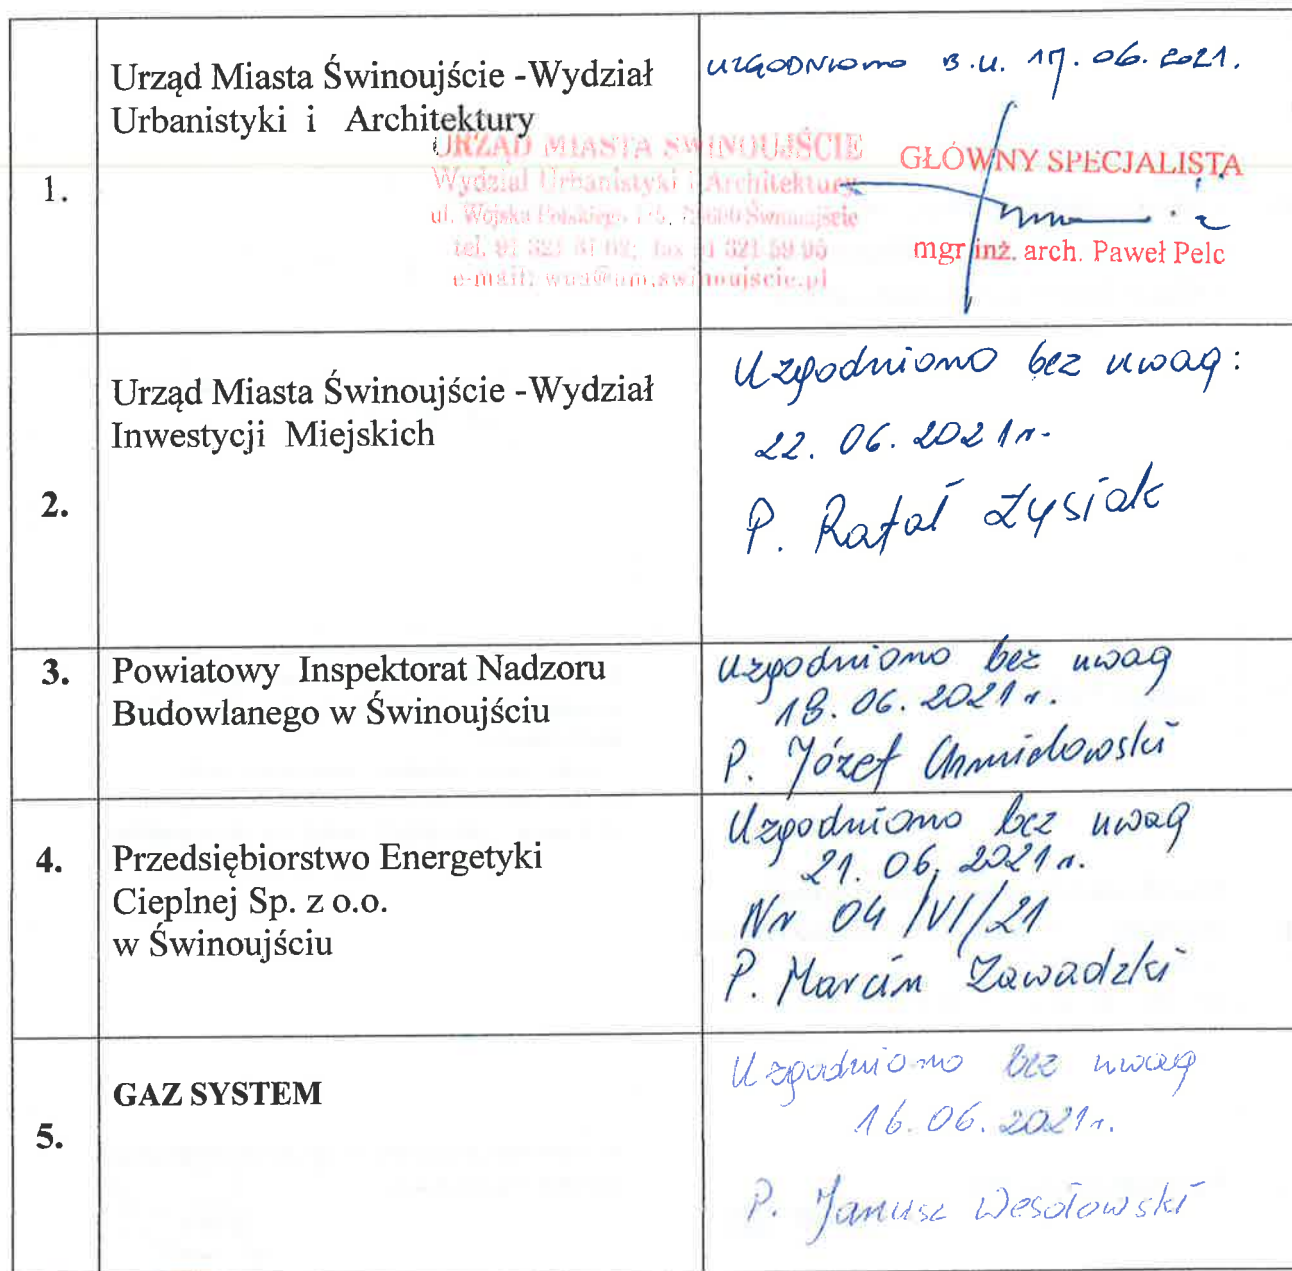 1.
Urząd Miasta Świnoujście -Wydział
Urbanistyki i Architektury
URZĄD MIASTA ŚWINOUJŚCIE
Wydział Urbanistyki i Architektury
ul. Wojska Polskiego 1/5, Świnoujście
e-mail: wua@um.swinoujscie.pl
UZGODNIONO B.U. 17.06.2021.
GŁÓWNY SPECJALISTA
mgr inż. arch. Paweł Pelc
2.
Urząd Miasta Świnoujście -Wydział
Inwestycji Miejskich
Uzgodniono bez uwag:
22. 06. 2021 r.
P. Rafał Łysiak
3.
Powiatowy Inspektorat Nadzoru
Budowlanego w Świnoujściu
Uzgodniono bez uwag
18. 06. 2021 r.
P. Józef Chmielowski
4.
Przedsiębiorstwo Energetyki
Cieplnej Sp. z o.o.
w Świnoujściu
Uzgodniono bez uwag
21. 06. 2021 r.
Nr 04/VI/21
P. Marcin Zawadzki
5.
GAZ SYSTEM
Uzgodniono bez uwag
16. 06. 2021 r.
P. Janusz Wesołowski